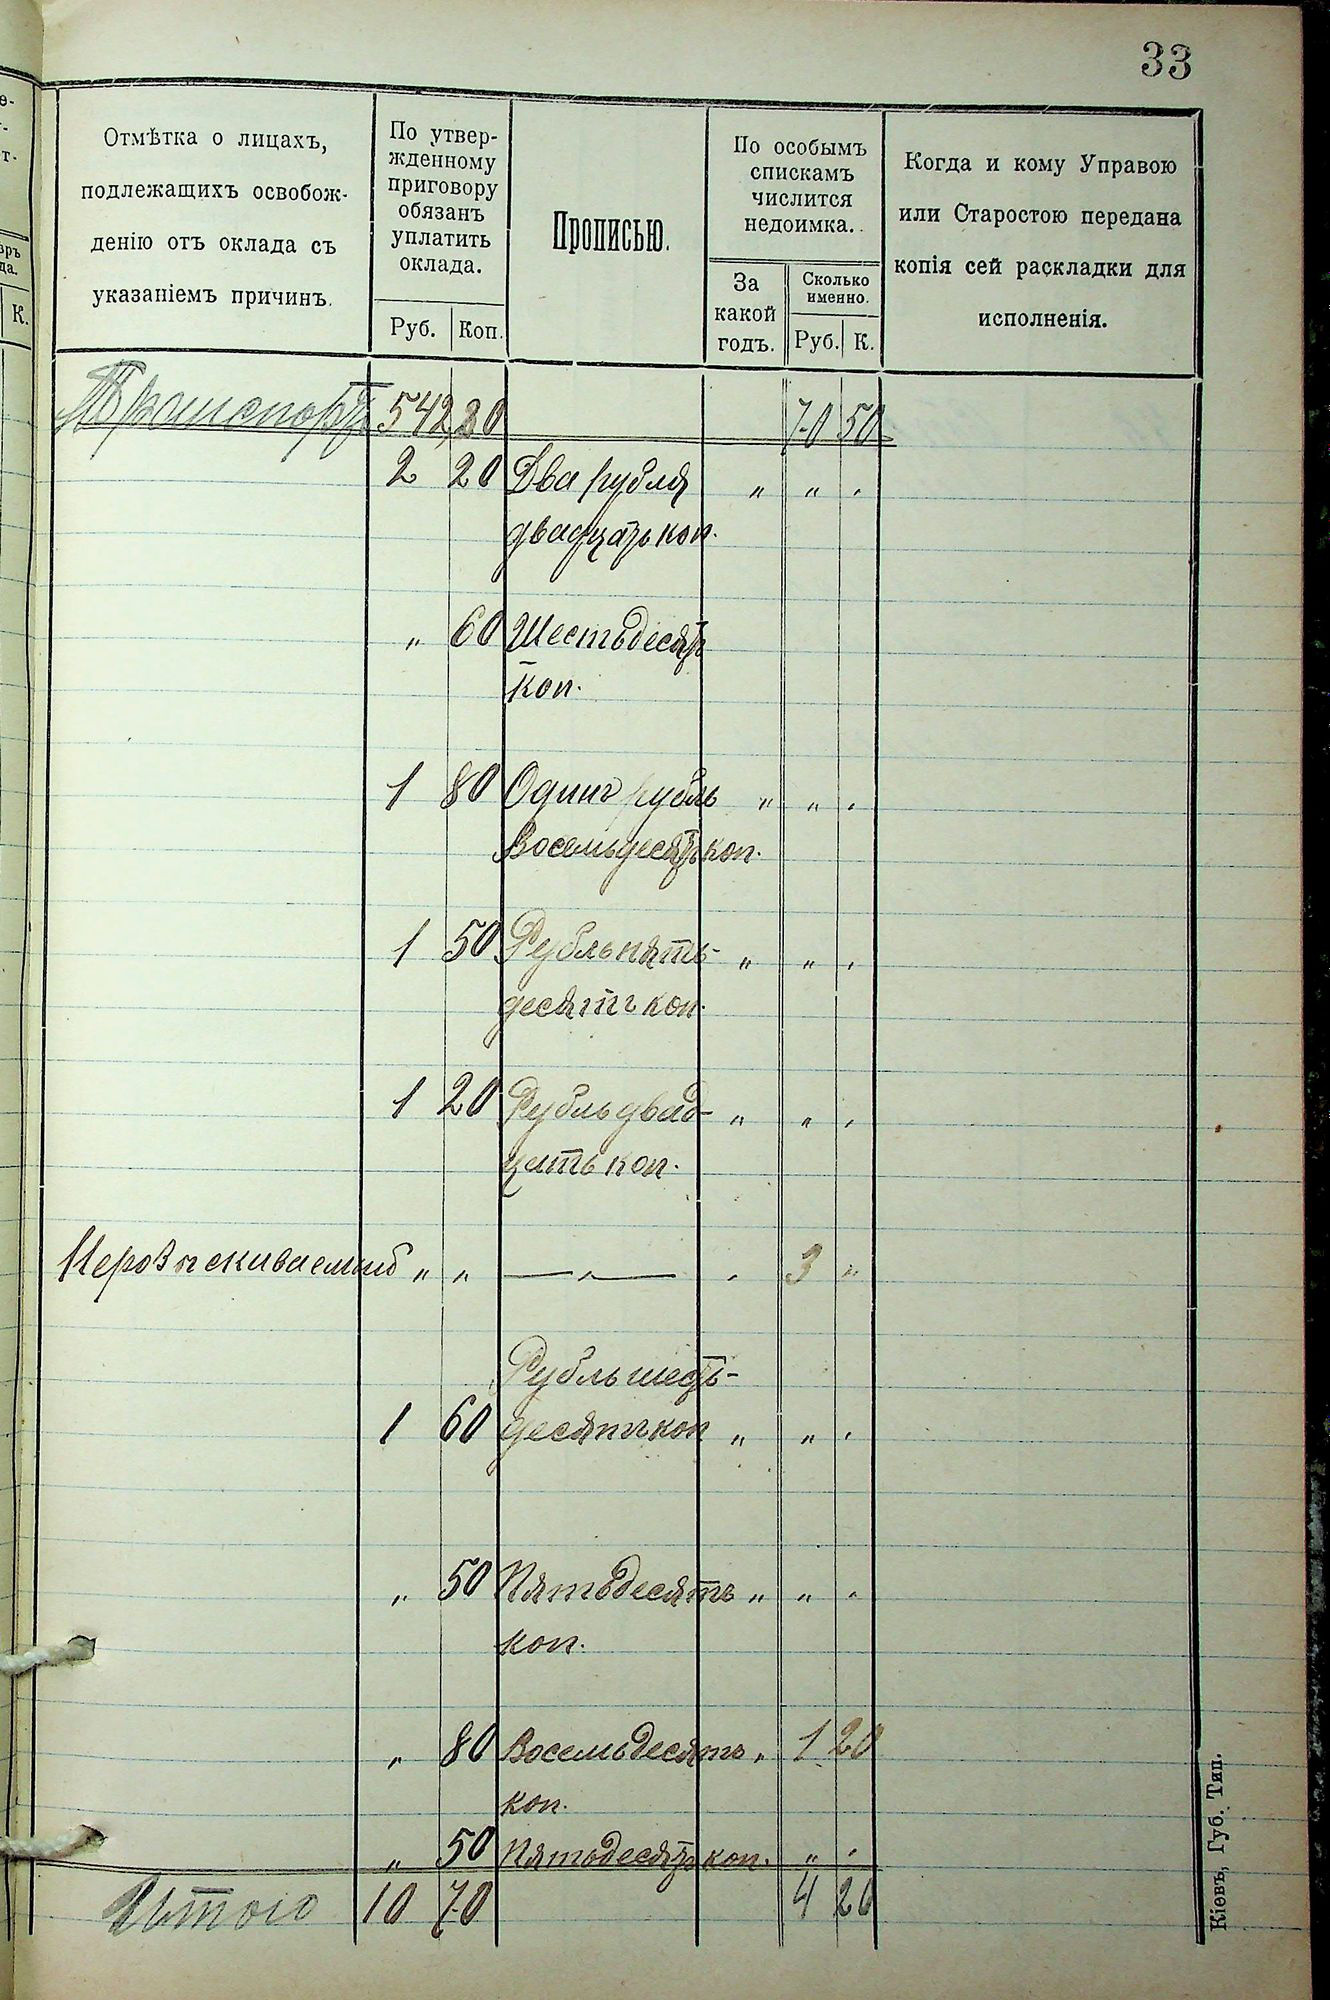 33
Отмѣтка о лицахъ,
подлежащихъ освобож-
денію отъ оклада съ
указаніемъ причинъ.
По утвер-
жденному
приговору
обязанъ
уплатить
оклада.
Руб. Коп.
Прописью.
По особымъ
спискамъ
числится
недоимка.
За
какой
годъ.
Сколько
именно.
Руб. К.
Когда и кому Управою
или Старостою передана
копія сей раскладки для
исполненія.
К.
Транспортъ 542 80 70 50
2 20 Два рубля " " "
двадцать коп.
" 60 Шестьдесятъ
коп.
1 80 Одинъ рубль " " "
Восемьдесятъ коп.
1 50 Рубль пять- " " "
десятъ коп.
1 20 Рубль двад- " " "
цать коп.
" " — " — " 3 "
Рубль шесть-
1 60 десятъ коп " " "
" 50 Пятьдесятъ " " "
коп.
" 80 Восемьдесятъ " 1 20
коп.
" 50 Пятьдесятъ коп. " "
Итого 10 70 4 20
Кіевъ, Губ. Тип.